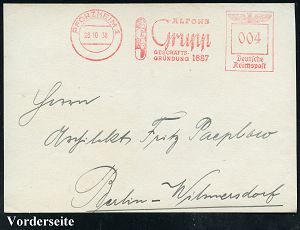 PFORZHEIM 2
28.10.38
ALFONS
Grupp
GESCHÄFTS-
GRÜNDUNG 1887
004
Deutsche
Reichspost
Herrn
Architekt Fritz Paeplow
Berlin-Wilmersdorf
Vorderseite